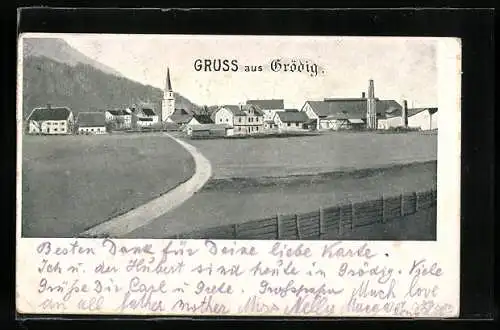 GRUSS aus Grödig.
Besten Dank für Deine liebe Karte.
Ich u. der Hubert sind heute in Grödig. Viele
Grüße Dir Carl und Grete. Großpapa Much love
an all father mother Miss Nelly